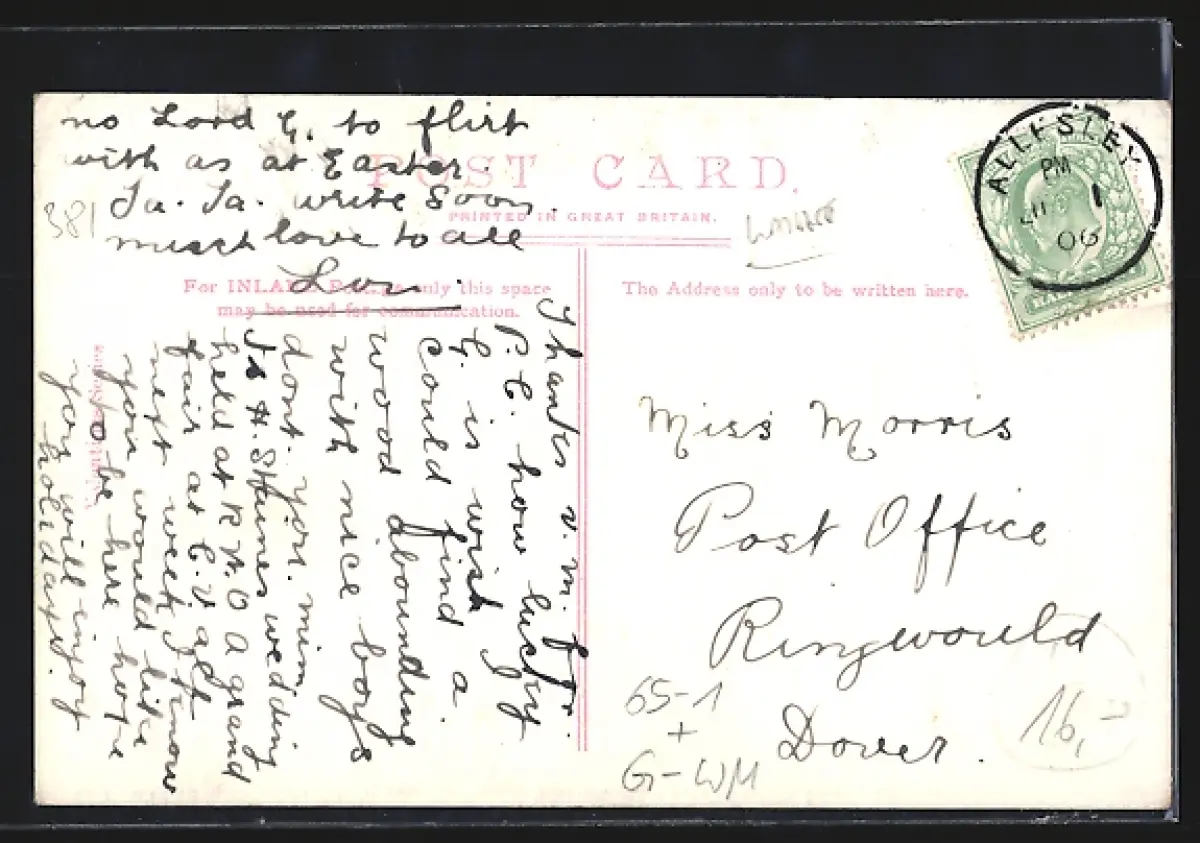 no Lord G. to flirt
with as at Easter.
Ta. Ta. write soon.
much love to all
POST CARD.
PRINTED IN GREAT BRITAIN.
381
For INLAND only this space
may be used for communication.
The Address only to be written here.
ALLESLEY
PM
1
06
Thanks v. m. for
P. C. how lucky
G. is wish
could find a
wood abounding
with nice boys
dont you. mim
Is H. wedding
held at a grand
fair at C. V. a
next week I know
you would like
to be here hope
you will enjoy
holidays.
Miss Morris
Post Office
Ringwould
Dover.
65-1
+
G-WM
16,-